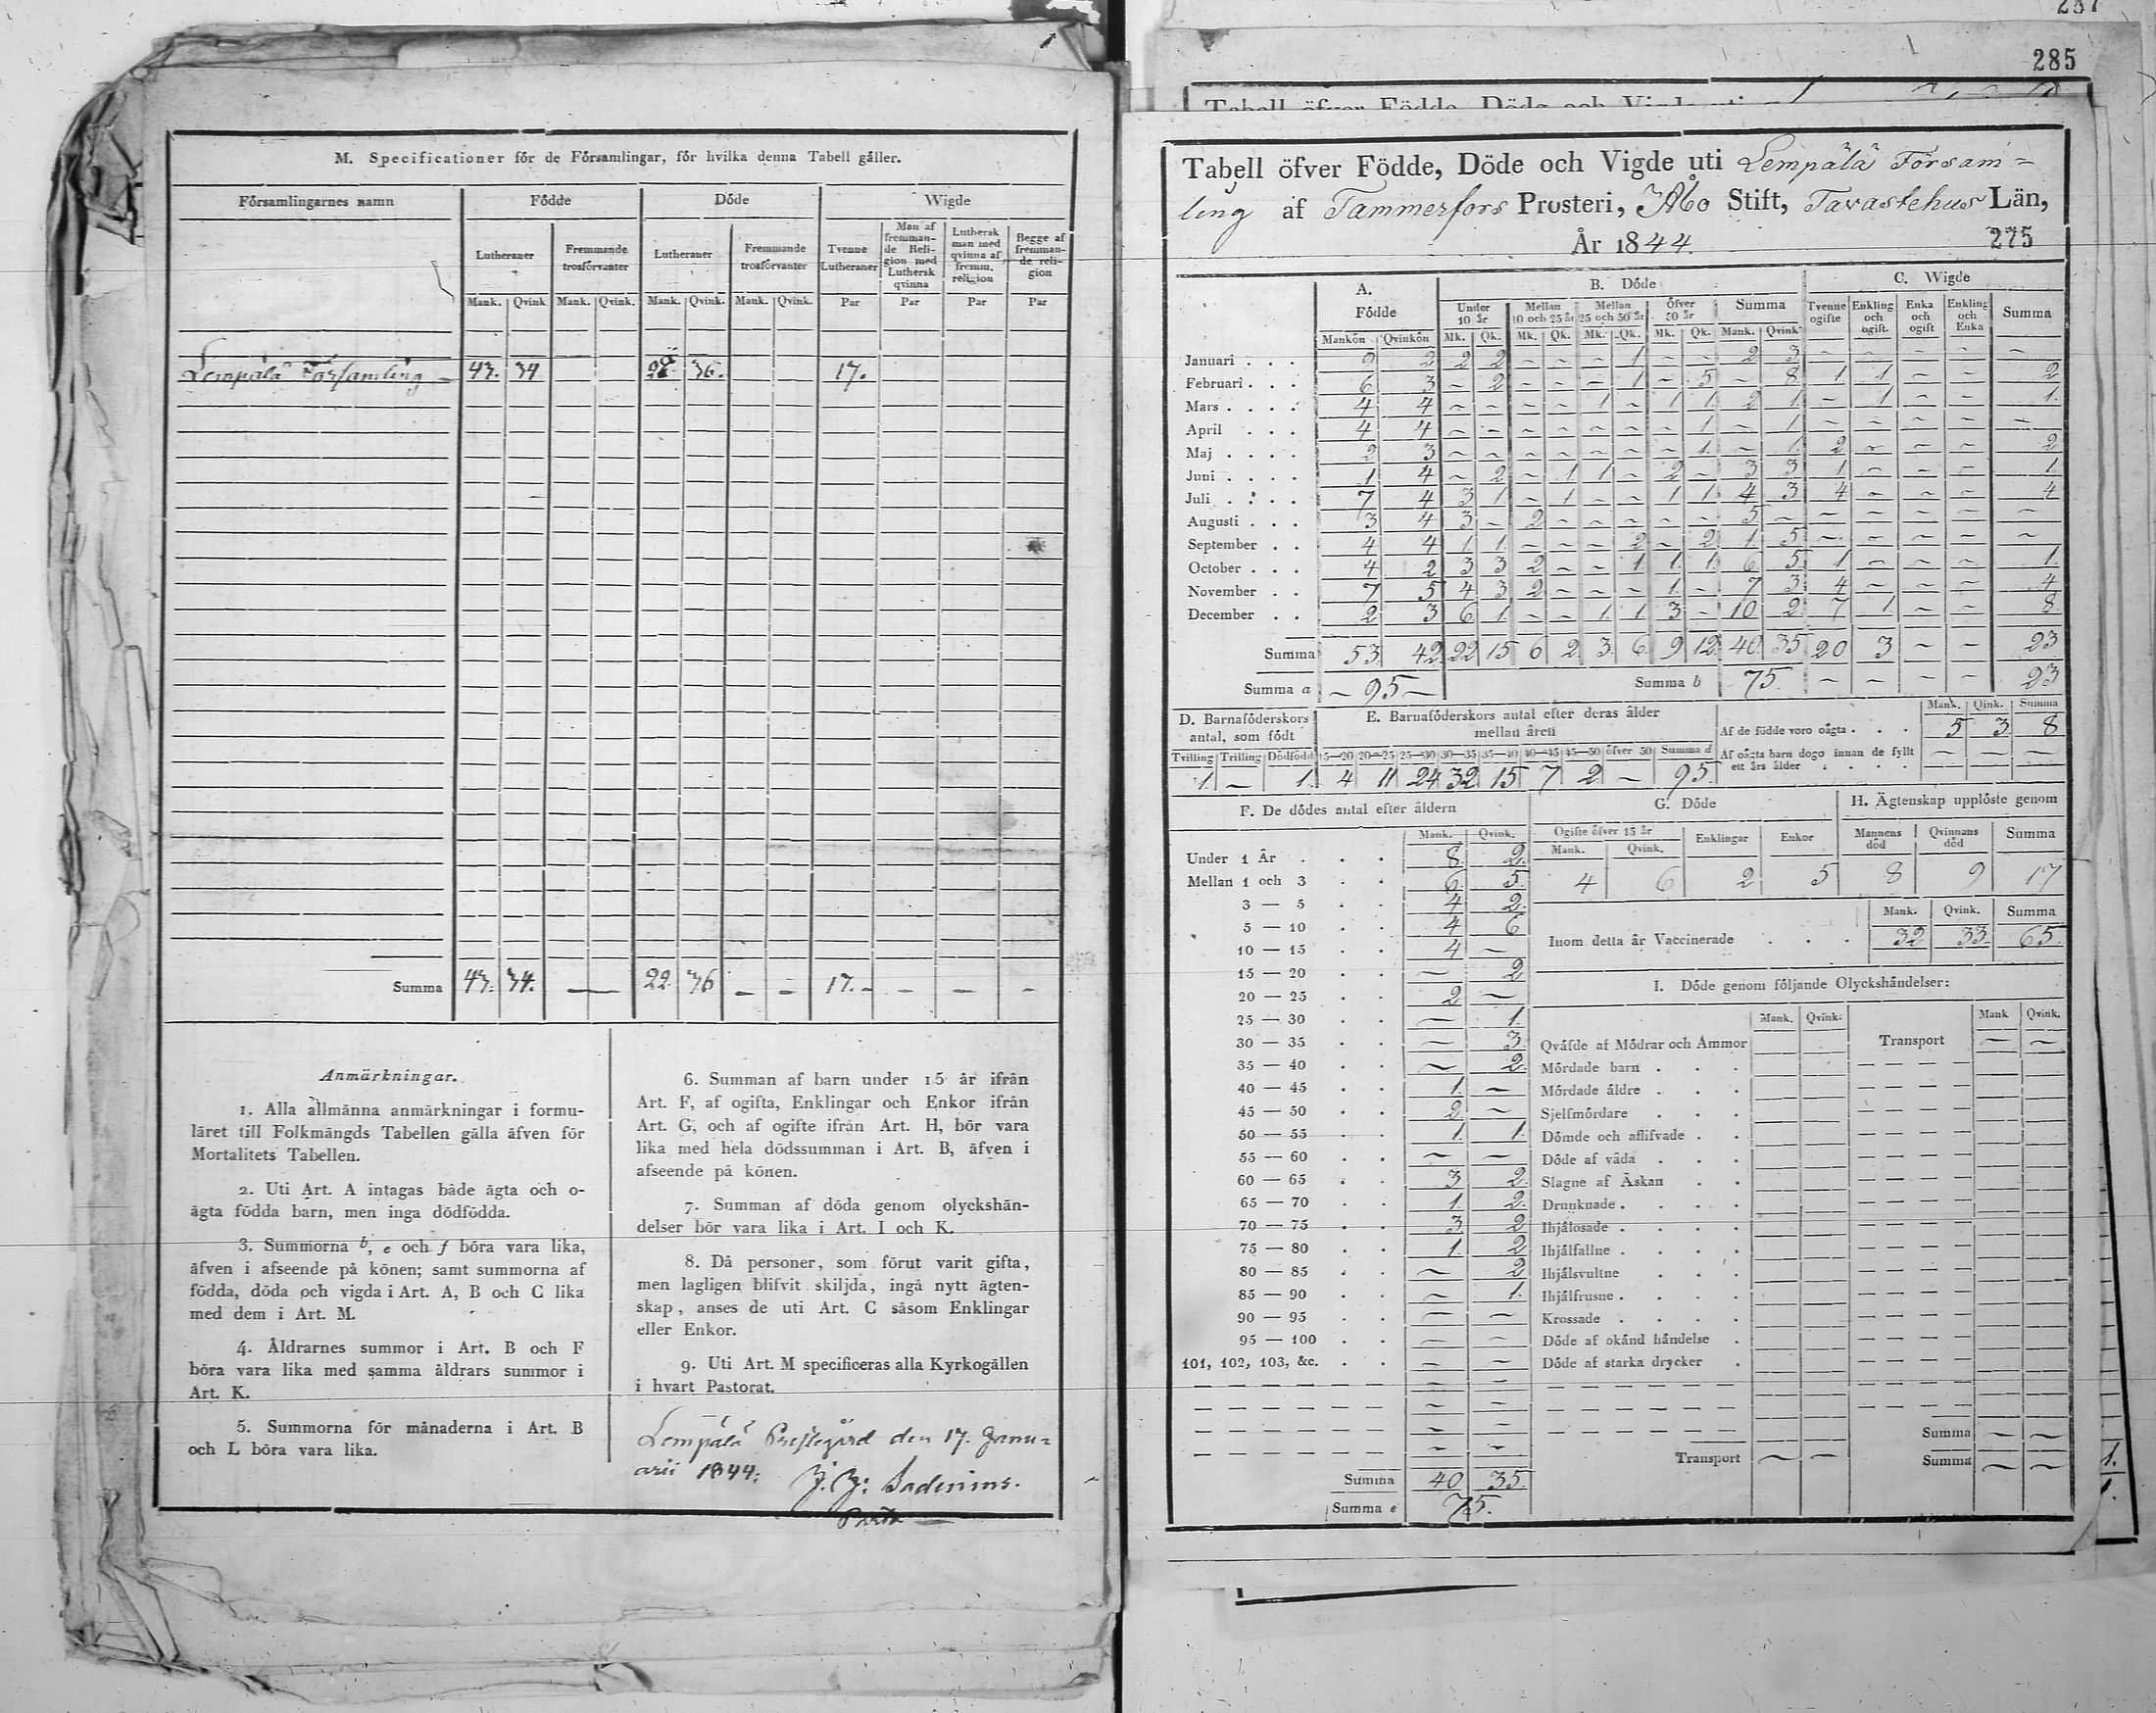 M. Specificationer för de Församlingar, för hvilka denna Tabell gäller.
Församlingarnes namn Födde Döde Wigde
Lutheraner Fremmande trosförvanter Lutheraner Fremmande trosförvanter Tvenne Lutheraner Man af fremmande Religion med Luthersk qvinna Luthersk man med qvinna af fremm. religion Begge af fremmande religion
Mank. Qvink. Mank. Qvink. Mank. Qvink. Mank. Qvink. Par Par Par Par
Lempälä Församling 43. 34 36. 17.
Summa 43. 34. — 22. 36 — — 17. — — — —
Anmärkningar.
1. Alla allmänna anmärkningar i formu-
läret till Folkmängds Tabellen gälla äfven för
Mortalitets Tabellen.
2. Uti Art. A intagas både ägta och o-
ägta födda barn, men inga dödfödda.
3. Summorna b, e och f böra vara lika,
äfven i afseende på könen; samt summorna af
födda, döda och vigda i Art. A, B och C lika
med dem i Art. M.
4. Åldrarnes summor i Art. B och F
böra vara lika med samma åldrars summor i
Art. K.
5. Summorna för månaderna i Art. B
och L böra vara lika.
6. Summan af barn under 15 år ifrån
Art. F, af ogifta, Enklingar och Enkor ifrån
Art. G, och af ogifte ifrån Art. H, bör vara
lika med hela dödssumman i Art. B, äfven i
afseende på könen.
7. Summan af döda genom olyckshän-
delser bör vara lika i Art. I och K.
8. Då personer, som förut varit gifta,
men lagligen blifvit skiljda, ingå nytt ägten-
skap, anses de uti Art. C såsom Enklingar
eller Enkor.
9. Uti Art. M specificeras alla Kyrkogällen
i hvart Pastorat.
Lempälä Prestegård den 17. Janu-
arii 1844.
285
Tabell öfver Födde, Döde och Vigde uti
Tabell öfver Födde, Döde och Vigde uti Lempälä Försam=
ling af Tammerfors Prosteri, Åbo Stift, Tavastehus Län,
År 1844. 275
A. Födde B. Döde C. Wigde
Under 10 år Mellan 10 och 25 år Mellan 25 och 50 år Öfver 50 år Summa Tvenne ogifte Enkling och ogift. Enka och ogift Enkling och Enka Summa
Mankön Qvinkön Mk. Qk. Mk. Qk. Mk. Qk. Mk. Qk. Mank. Qvink.
Januari . . . 2 2 2 2 – – – 1 – – 2 3 – – – – –
Februari . . . 6 3 – 2 – – – 1 – 5 – 8 1 1 – – 2
Mars . . . . 4 4 – – – – 1 – 1 1 2 1 – 1 – – 1.
April . . . 4 4 – – – – – – – 1 – 1 – – – – –
Maj . . . . 2 3 – – – – – – – 1. – 1. 2 – – – 2
Juni . . . . 1 4 – 2 – 1 1 – 2 – 3 3 1 – – – 1
Juli . . . . 7 4 3 1 – 1 – – 1 1 4 3 4 – – – 4
Augusti . . . 3 4 3 – 2 – – – – – 5 – – – – – –
September . . 4 4 1 1 – – – 2 – 2 1 5 – – – – –
October . . . 4 2 3 3 2 – – 1 1 1 6 5 1 – – – 1.
November . . 7 5 4 3 2 – – – 1 – 7 3 4 – – – 4
December . . 2 3 6 1 – – 1 1 3 – 10 2 7 1 – – 8
Summa 53. 42 22 15 6 2 3 6 9 12 40 35 20 3 – – 23
Summa a – 95 – Summa b 75 – – – – 23
D. Barnaföderskors antal, som födt E. Barnaföderskors antal efter deras ålder mellan åren
Mank. Qink. Summa
Af de födde voro oägta . . . 5 3 8
Af oägta barn dogo innan de fyllt ett års ålder . . . — — —
Tvilling Trilling Dödfödd 15—20 20—25 25—30 30—35 35—40 40—45 45—50 öfver 50 Summa d
1. – 1. 4 11 24 32 15 7 2 – 95
F. De dödes antal efter åldern
Mank. Qvink.
Under 1 År . . . 8 2
Mellan 1 och 3 . . 6 5
3 — 5 . . 4 2
5 — 10 . . 4 6
10 — 15 . . 4 —
15 — 20 . . — 2
20 — 25 . . 2 —
25 — 30 . . — 1.
30 — 35 . . — 3
35 — 40 . . — 2
40 — 45 . . 1. —
45 — 50 . . 2 —
50 — 55 . . 1. 1
55 — 60 . . — —
60 — 65 . . 3 2
65 — 70 . . 1. 2
70 — 75 . . 3 2
75 — 80 . . 1. 2
80 — 85 . . — 2
85 — 90 . . — 1.
90 — 95 . . — —
95 — 100 . . — —
101, 102, 103, &c. . . — —
Summa 40 35
Summa e 75.
G. Döde
Ogifte öfver 15 år Enklingar Enkor
Mank. Qvink.
4 6 2 5
H. Ägtenskap upplöste genom
Mannens död Qvinnans död Summa
8 9 17
Mank. Qvink. Summa
Inom detta år Vaccinerade . . . 32 33 65.
I. Döde genom följande Olyckshändelser:
Mank. Qvink. Mank Qvink.
Qväfde af Mödrar och Ammor Transport — —
Mördade barn . . .
Mördade äldre . . .
Sjelfmördare . . .
Dömde och aflifvade . .
Döde af våda . . .
Slagne af Åskan . .
Drunknade . . . .
Ihjälosade . . . .
Ihjälfallne . . . .
Ihjälsvultne . . .
Ihjälfrusne . . . .
Krossade . . . .
Döde af okänd händelse .
Döde af starka drycker .
Summa — —
Transport — — Summa — —